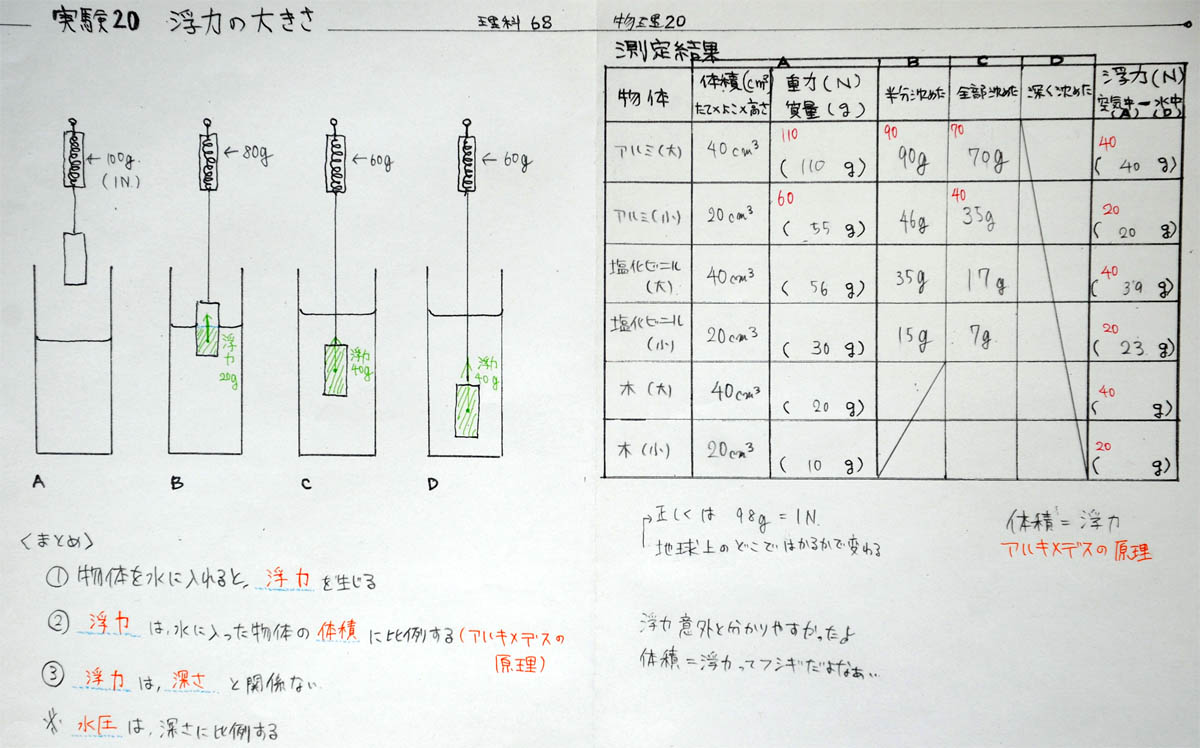 実験20 浮力の大きさ
理科68
物理20
←100g
(1N)
←80g
←60g
←60g
浮力
20g
浮力
40g
浮力
40g
A
B
C
D
<まとめ>
① 物体を水に入れると、浮力を生じる
② 浮力は、水に入った物体の体積に比例する(アルキメデスの
原理)
③ 浮力は、深さと関係ない
※ 水圧は、深さに比例する
測定結果
A B C D
物体 体積(cm³) 重力(N) 半分沈めた 全部沈めた 深く沈めた 浮力(N)
たて×よこ×高さ 質量(g) 空気中(A)-水中(D)
110 90 70 40
アルミ(大) 40cm³ (110g) 90g 70g (40g)
60 40 20
アルミ(小) 20cm³ (55g) 46g 35g (20g)
40
塩化ビニル(大) 40cm³ (56g) 35g 17g (39g)
20
塩化ビニル(小) 20cm³ (30g) 15g 7g (23g)
40
木(大) 40cm³ (20g) ( g)
20
木(小) 20cm³ (10g) ( g)
正しくは 98g=1N.
地球上のどこではかるかで変わる
体積=浮力
アルキメデスの原理
浮力意外と分かりやすかったよ
体積=浮力ってフシギだよなあ…